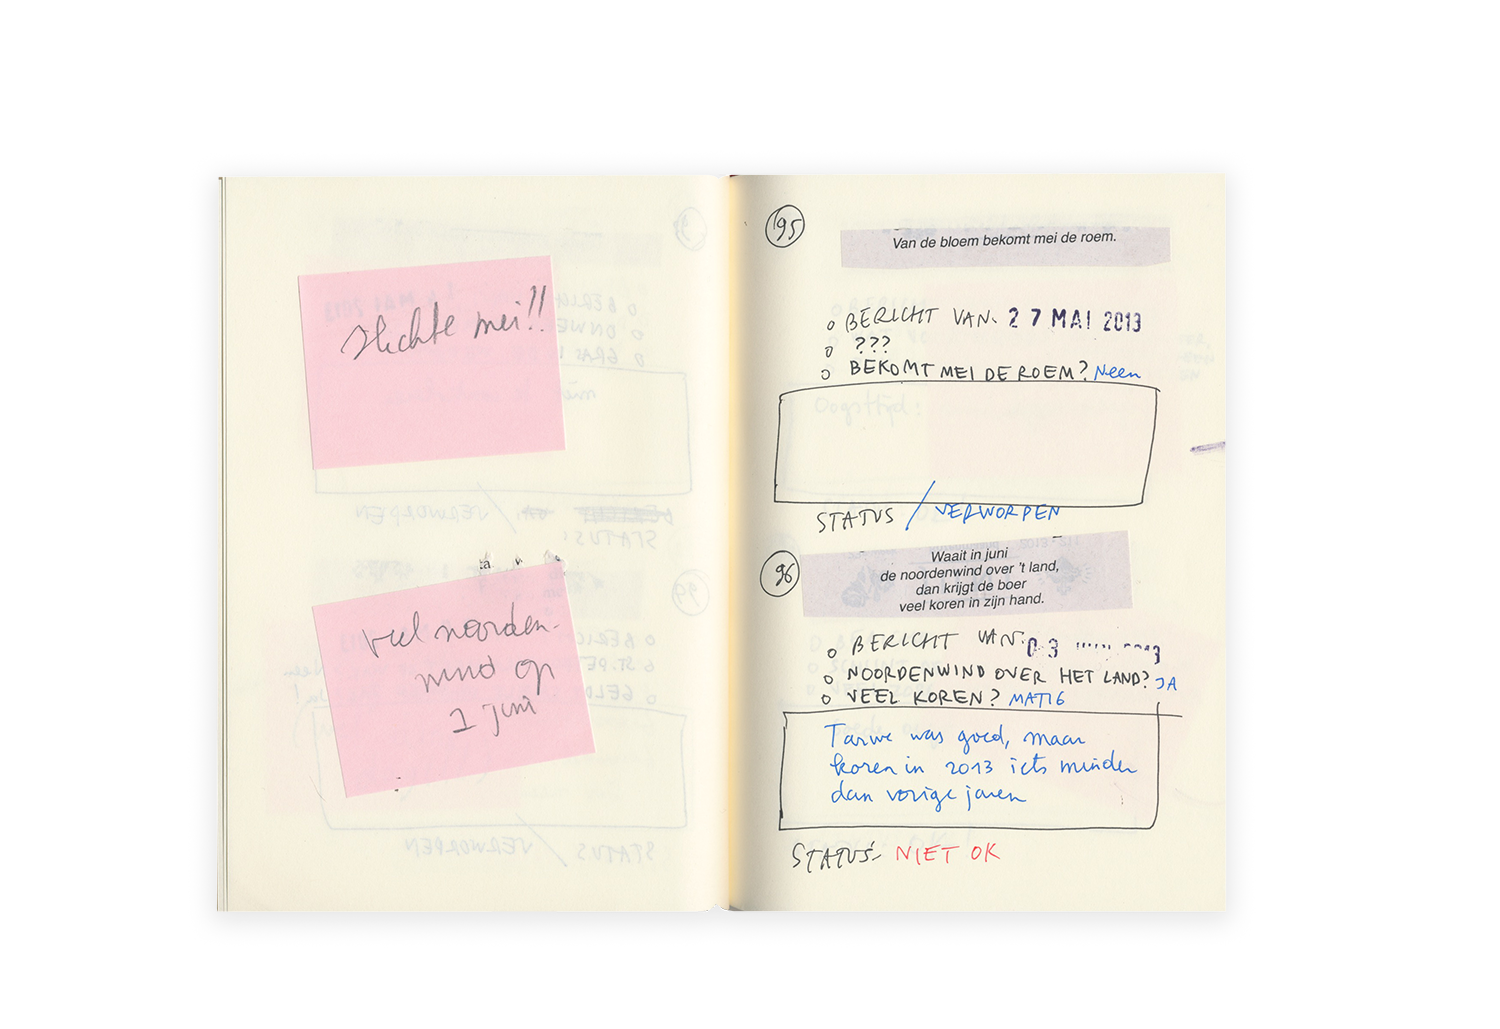 slechte mei!!
veel noorden-
wind op
1 juni
95
Van de bloem bekomt mei de roem.
BERICHT VAN. 27 MAI 2013
???
BEKOMT MEI DE ROEM? Neen
Oogsttijd:
STATUS / VERWORPEN
96
Waait in juni
de noordenwind over 't land,
dan krijgt de boer
veel koren in zijn hand.
BERICHT VAN: 03
NOORDENWIND OVER HET LAND? JA
VEEL KOREN? MATIG
Tarwe was goed, maar
koren in 2013 iets minder
dan vorige jaren
STATUS: NIET OK